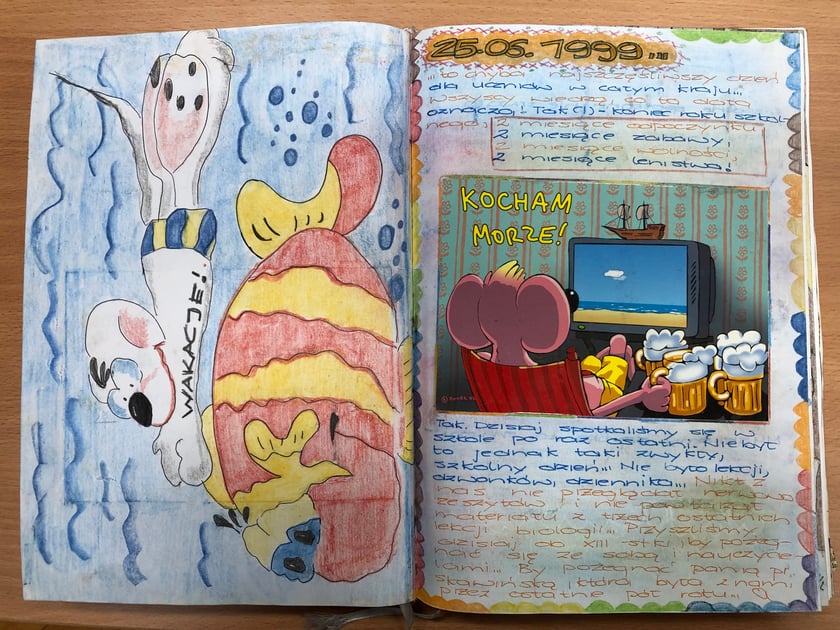 WAKACJE!
25.06.1999...
... to chyba najszczęśliwszy dzień
dla uczniów w całym kraju...
Wszyscy wiedzą, co ta data
oznacza! Tak (!) - koniec roku szkol-
nego,
2 miesiące odpoczynku
2 miesiące zabawy!
2 miesiące wolności,
2 miesiące lenistwa!
KOCHAM
MORZE!
Tak. Dzisiaj spotkaliśmy się w
szkole po raz ostatni. Nie był
to jednak taki zwykły,
szkolny dzień... Nie było lekcji,
dzwonków, dziennika... Nikt z
nas nie przeglądał nerwowo
zeszytów i nie powtarzał
materiału z trzech ostatnich
lekcji biologii... Przyszliśmy
dzisiaj do XIII-stki by pożeg-
nać się ze sobą i nauczycie-
lami... By pożegnać panią pr.
skawińską, która była z nami
przez ostatnie pół roku...